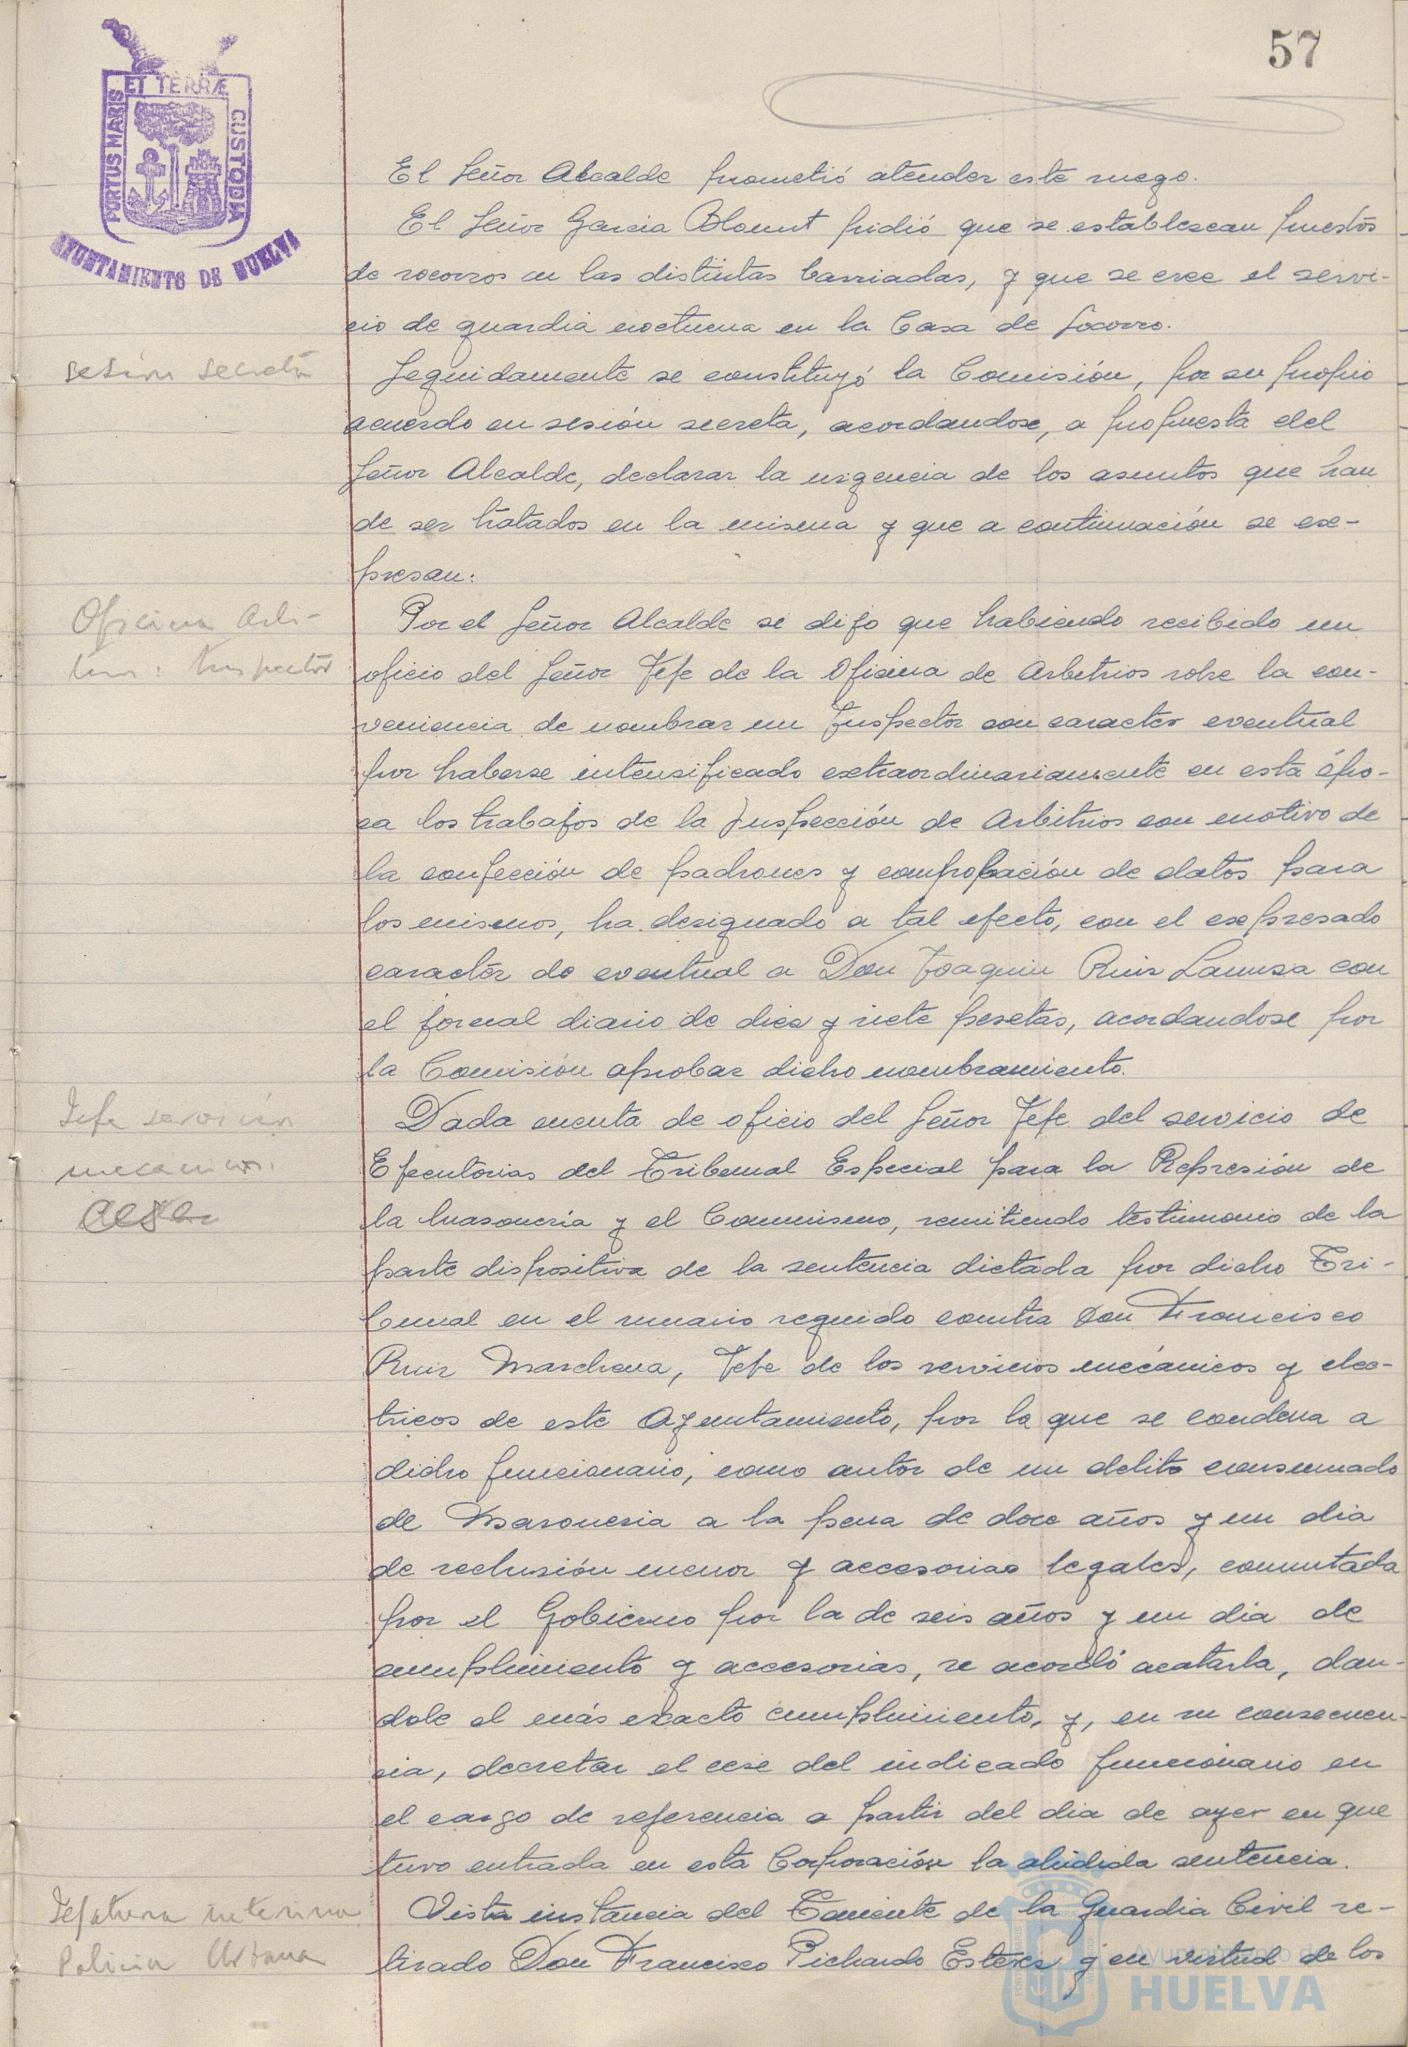 57
ET TERRÆ
PORTUS MARIS
CUSTODIA
AYUNTAMIENTO DE HUELVA
El Señor Alcalde prometió atender este ruego.
El Señor Garcia Blount pidió que se establezcan puestos
de socorros en las distintas barriadas, y que se cree el servi-
cio de guardia nocturna en la Casa de Socorro.
sesión secreta
Seguidamente se constituyó la Comisión, por su propio
acuerdo en sesión secreta, acordandose, a propuesta del
Señor Alcalde, declarar la urgencia de los asuntos que han
de ser tratados en la misma y que a continuación se ex-
presan:
Oficina Arbi-
trios. Inspector
Por el Señor Alcalde se dijo que habiendo recibido un
oficio del Señor Jefe de la Oficina de Arbitrios sobre la con-
veniencia de nombrar un Inspector con caracter eventual
por haberse intensificado extraordinariamente en esta épo-
ca los trabajos de la Inspección de Arbitrios con motivo de
la confección de padrones y comprobación de datos para
los mismos, ha designado a tal efecto, con el expresado
caracter de eventual a Don Joaquin Ruiz Lanuza con
el jornal diario de diez y siete pesetas, acordandose por
la Comisión aprobar dicho nombramiento.
Jefe servicios
mecanicos.
Cese
Dada cuenta de oficio del Señor Jefe del servicio de
Ejecutorias del Tribunal Especial para la Represión de
la Masonería y el Comunismo, remitiendo testimonio de la
parte dispositiva de la sentencia dictada por dicho Tri-
bunal en el sumario seguido contra Don Francisco
Ruiz Marchena, Jefe de los servicios mecánicos y elec-
tricos de este Ayuntamiento, por la que se condena a
dicho funcionario, como autor de un delito consumado
de Masoneria a la pena de doce años y un dia
de reclusión menor y accesorias legales, conmutada
por el Gobierno por la de seis años y un dia de
cumplimiento y accesorias, se acordó acatarla, dan-
dole el más exacto cumplimiento, y, en su consecuen-
cia, decretar el cese del indicado funcionario en
el cargo de referencia a partir del dia de ayer en que
tuvo entrada en esta Corporación la aludida sentencia.
Jefatura interina
Policia Urbana
Vista instancia del Teniente de la Guardia Civil re-
tirado Don Francisco Pichardo Esteves y en virtud de los
Ayuntamiento de
HUELVA